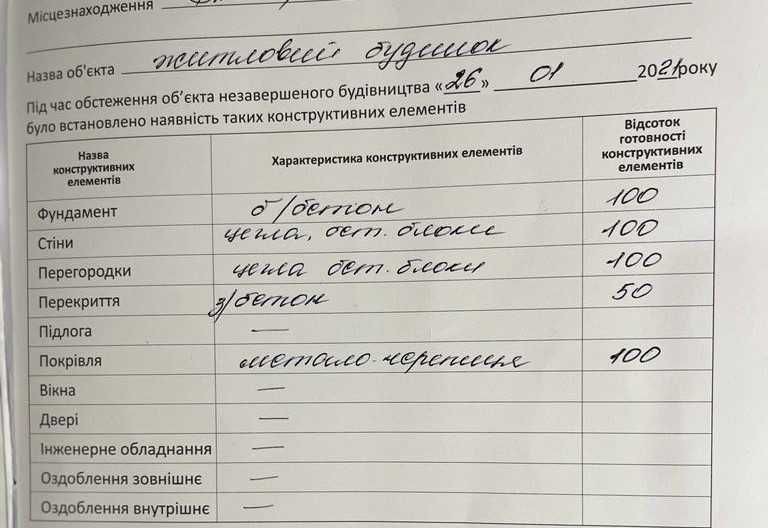 Місцезнаходження
Назва об'єкта житловий будинок
Під час обстеження об'єкта незавершеного будівництва «26» 01 2021року
було встановлено наявність таких конструктивних елементів
Назва конструктивних елементів Характеристика конструктивних елементів Відсоток готовності конструктивних елементів
Фундамент б/бетон 100
Стіни цегла, бет. блоки 100
Перегородки цегла бет. блоки 100
Перекриття з/бетон 50
Підлога —
Покрівля метало-черепиця 100
Вікна —
Двері —
Інженерне обладнання —
Оздоблення зовнішнє —
Оздоблення внутрішнє —